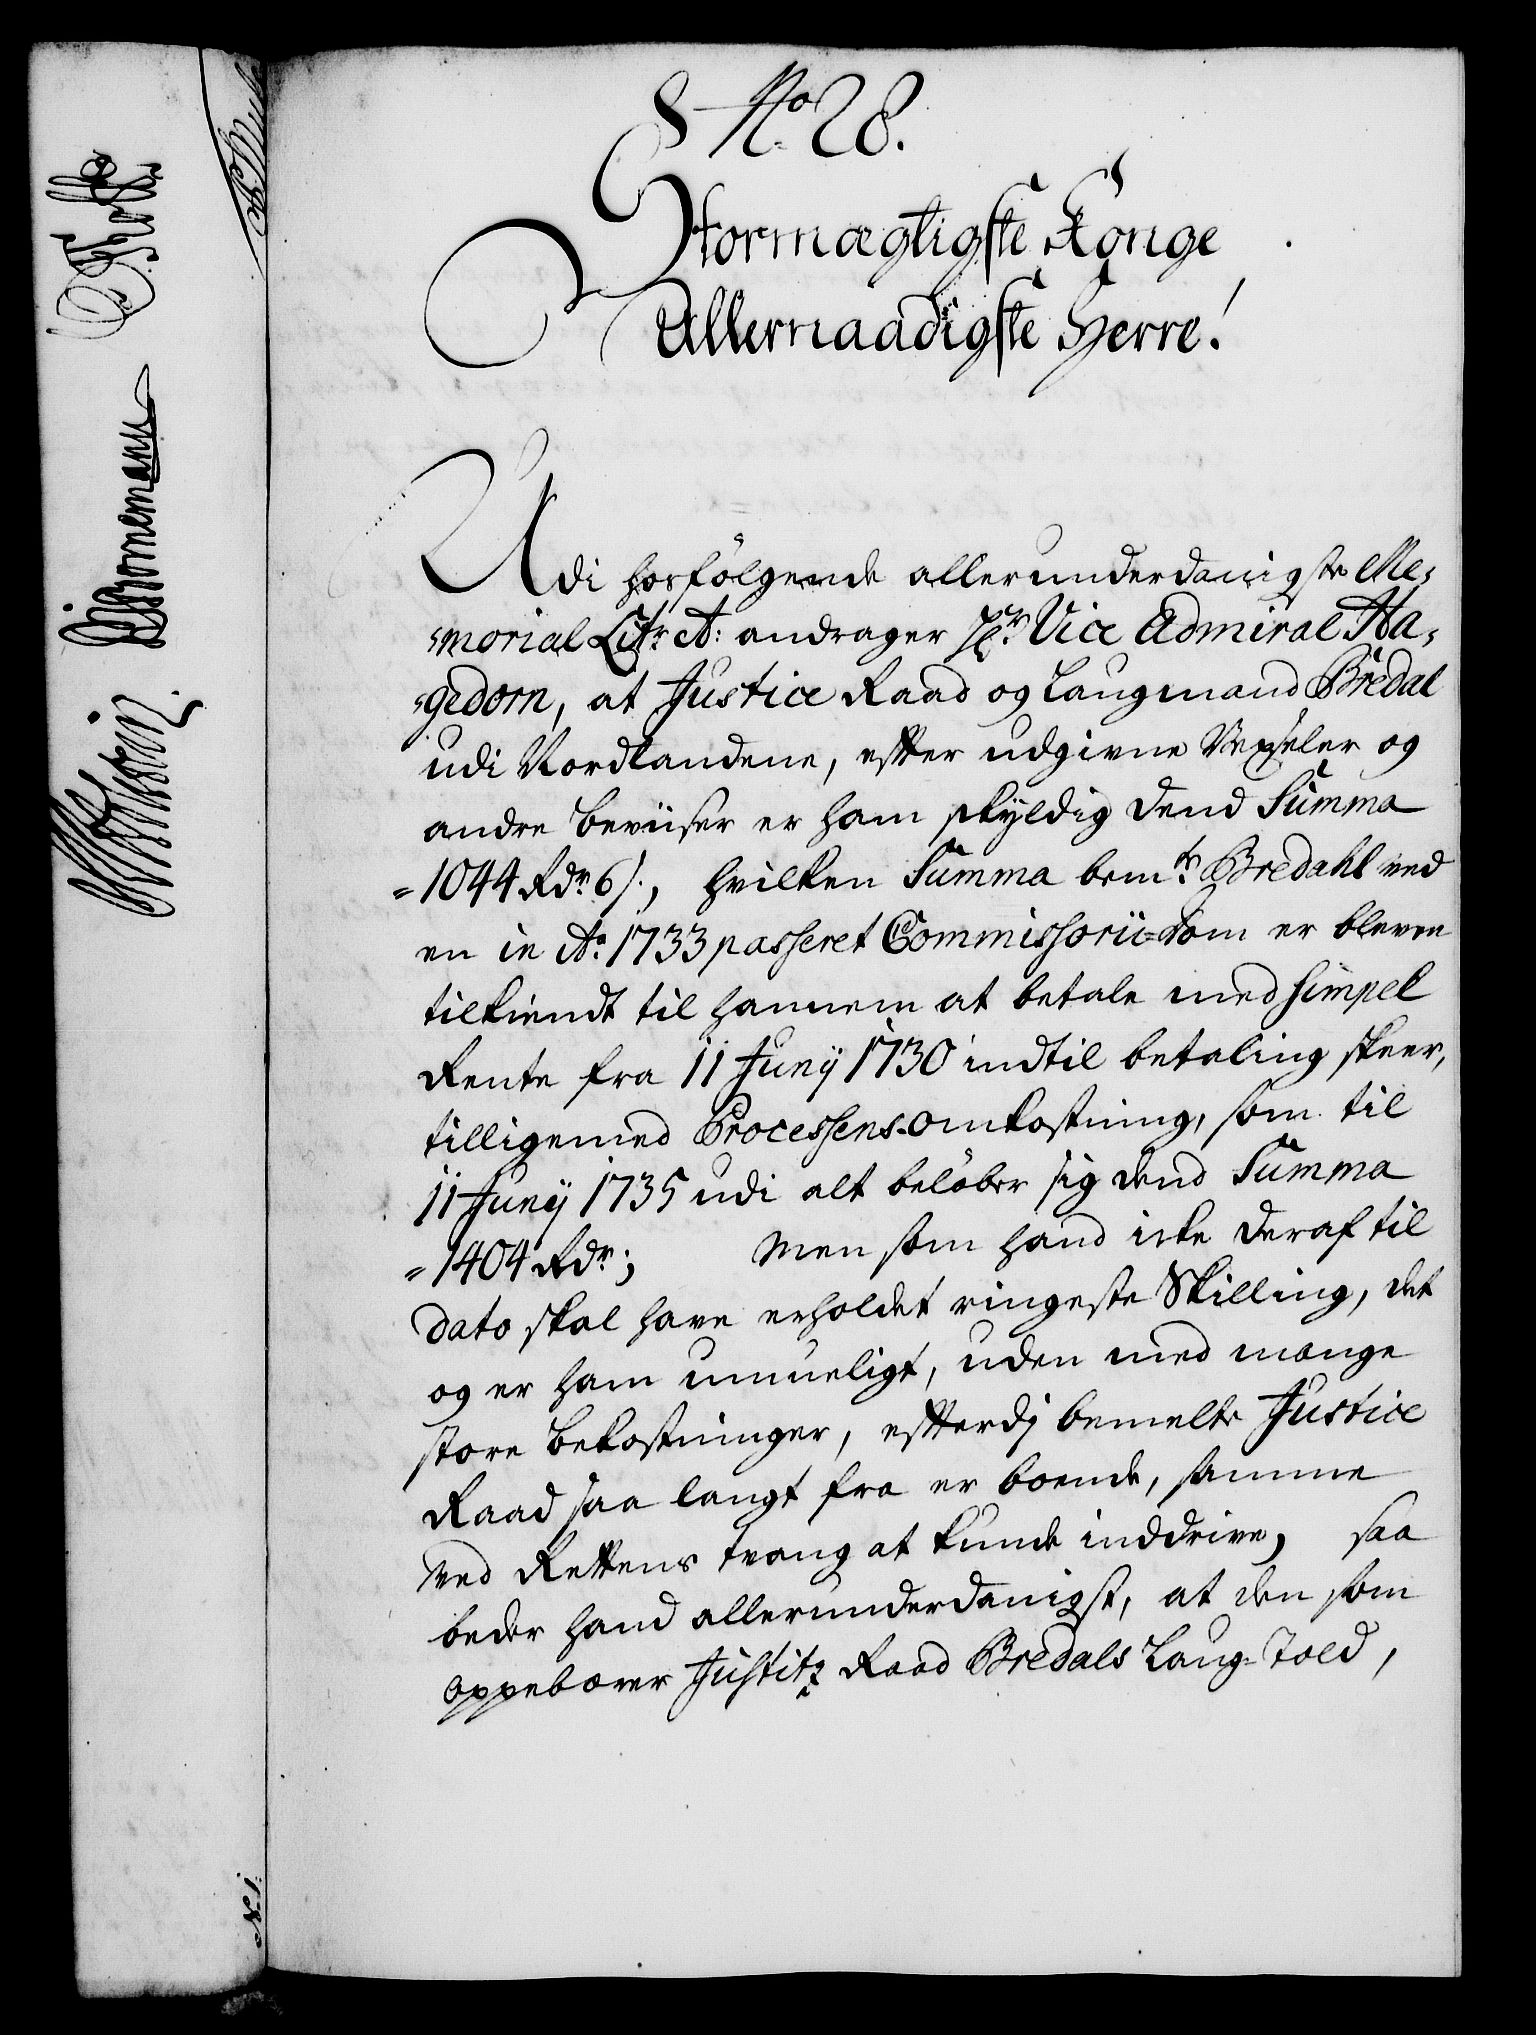 No 28.
Stormægtigste Konge
Allernaadigste Herre!
Udi hosfölgende allerunderdanigste Me,
,morial Litr A: andrager Hr. Vice Admiral Ha,
,gedorn, at Justice Raad og Laugmand Bredal
udi Nordlandene, efter udgivne Vexseler og
andre beviiser er ham skyldig dend Summa
=1044 Rdr 6 s., hvilken Summa bemte Bredahl ved
en in Ao. 1733 passeret Commissorii-dom er bleven
tilkiendt til hannem at betale med simpel
Rente fra 11 Junÿ 1730 indtil betaling skeer,
tilligemed Processens-omkostning, som til
11 Junÿ 1735 udi alt belöber sig dend Summa
=1404 Rdr; Men som hand icke deraf til
dato skal have erholdet ringeste Skilling, det
og er ham umueligt, uden med mange
store bekostninger, efterdj bemelte Justice
Raad saa langt fra er boende, samme
ved Rettens tvang at kunde inddrive, saa
beder hand allerunderdanigst, at den som
oppebærer Justitz Raad Bredals Laug-Told,
Bornemann
Holstein
No 1.